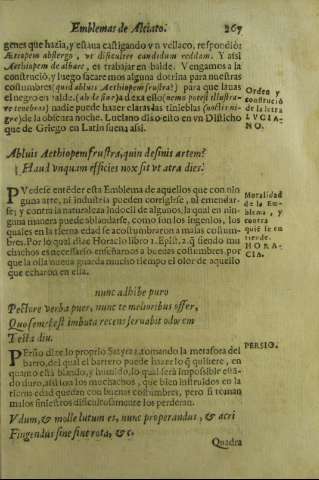 Emblemas de Alciato. 267
genes que hazia, y estaua castigando vn vellaco, respondiò:
Aetiopem abstergo, vt discutere candidum reddam. Y assi
Aethiopem dealbare, es trabajar en balde. Vengamos a la
construciõ, y luego sacaremos alguna dotrina para nuestras
costumbres (quid abluis Aethiopem frustra?) para que lauas
el negro en balde. (ah desine) a dexa esso (nemo potest illustra-
re tenebras) nadie puede hazer claras las tinieblas (noctis ni-
græ) de la obscura noche. Luciano dixo esto en vn Disticho
que de Griego en Latin suena assi.
Orden y
construciõ
de la letra
LVCIA-
NO.
Abluis Aethiopem frustra, quin desinis artem?
Haud vnquam efficies nox sit vt atra dies.
PVedese entẽder esta Emblema de aquellos que con nin
guna arte, ni industria pueden corrigirse, ni emendar-
se; y contra la naturaleza indocil de algunos, la qual en nin-
guna manera puede ablandarse, como son los ingenios, los
quales en la tierna edad se acostumbraron a malas costum-
bres. Por lo qual dize Horacio libro 1. Epist. 2. q̃ siendo mu
chachos es necessario enseñarnos a buenas costumbres, por
que la olla nueua guarda mucho tiempo el olor de aquello
que echaron en ella.
Moralidad
de la Em-
blema, y
contra
quiẽ se en
tiende.
HORA-
CIA.
nunc adhibe puro
Pectore verba puer, nunc te melioribus offer,
Quo semel est imbuta recens seruabit odorem
Testa diu.
PErsio dize lo proprio Satyra 3. tomando la metafora del
barro, del qual el barrero puede hazer lo q̃ quisiere, en
quanto està blando, y humido, lo qual serà impossible està-
do duro, assi son los muchachos, que bien instruidos en la
tierna edad quedan con buenas costumbres, pero si toman
malos siniestros dificultosamente los perderan.
PERSIO.
Vdum, & molle lutum es, nunc properandus, & acri
Fingendus sine fine rota, &c.
Quadra